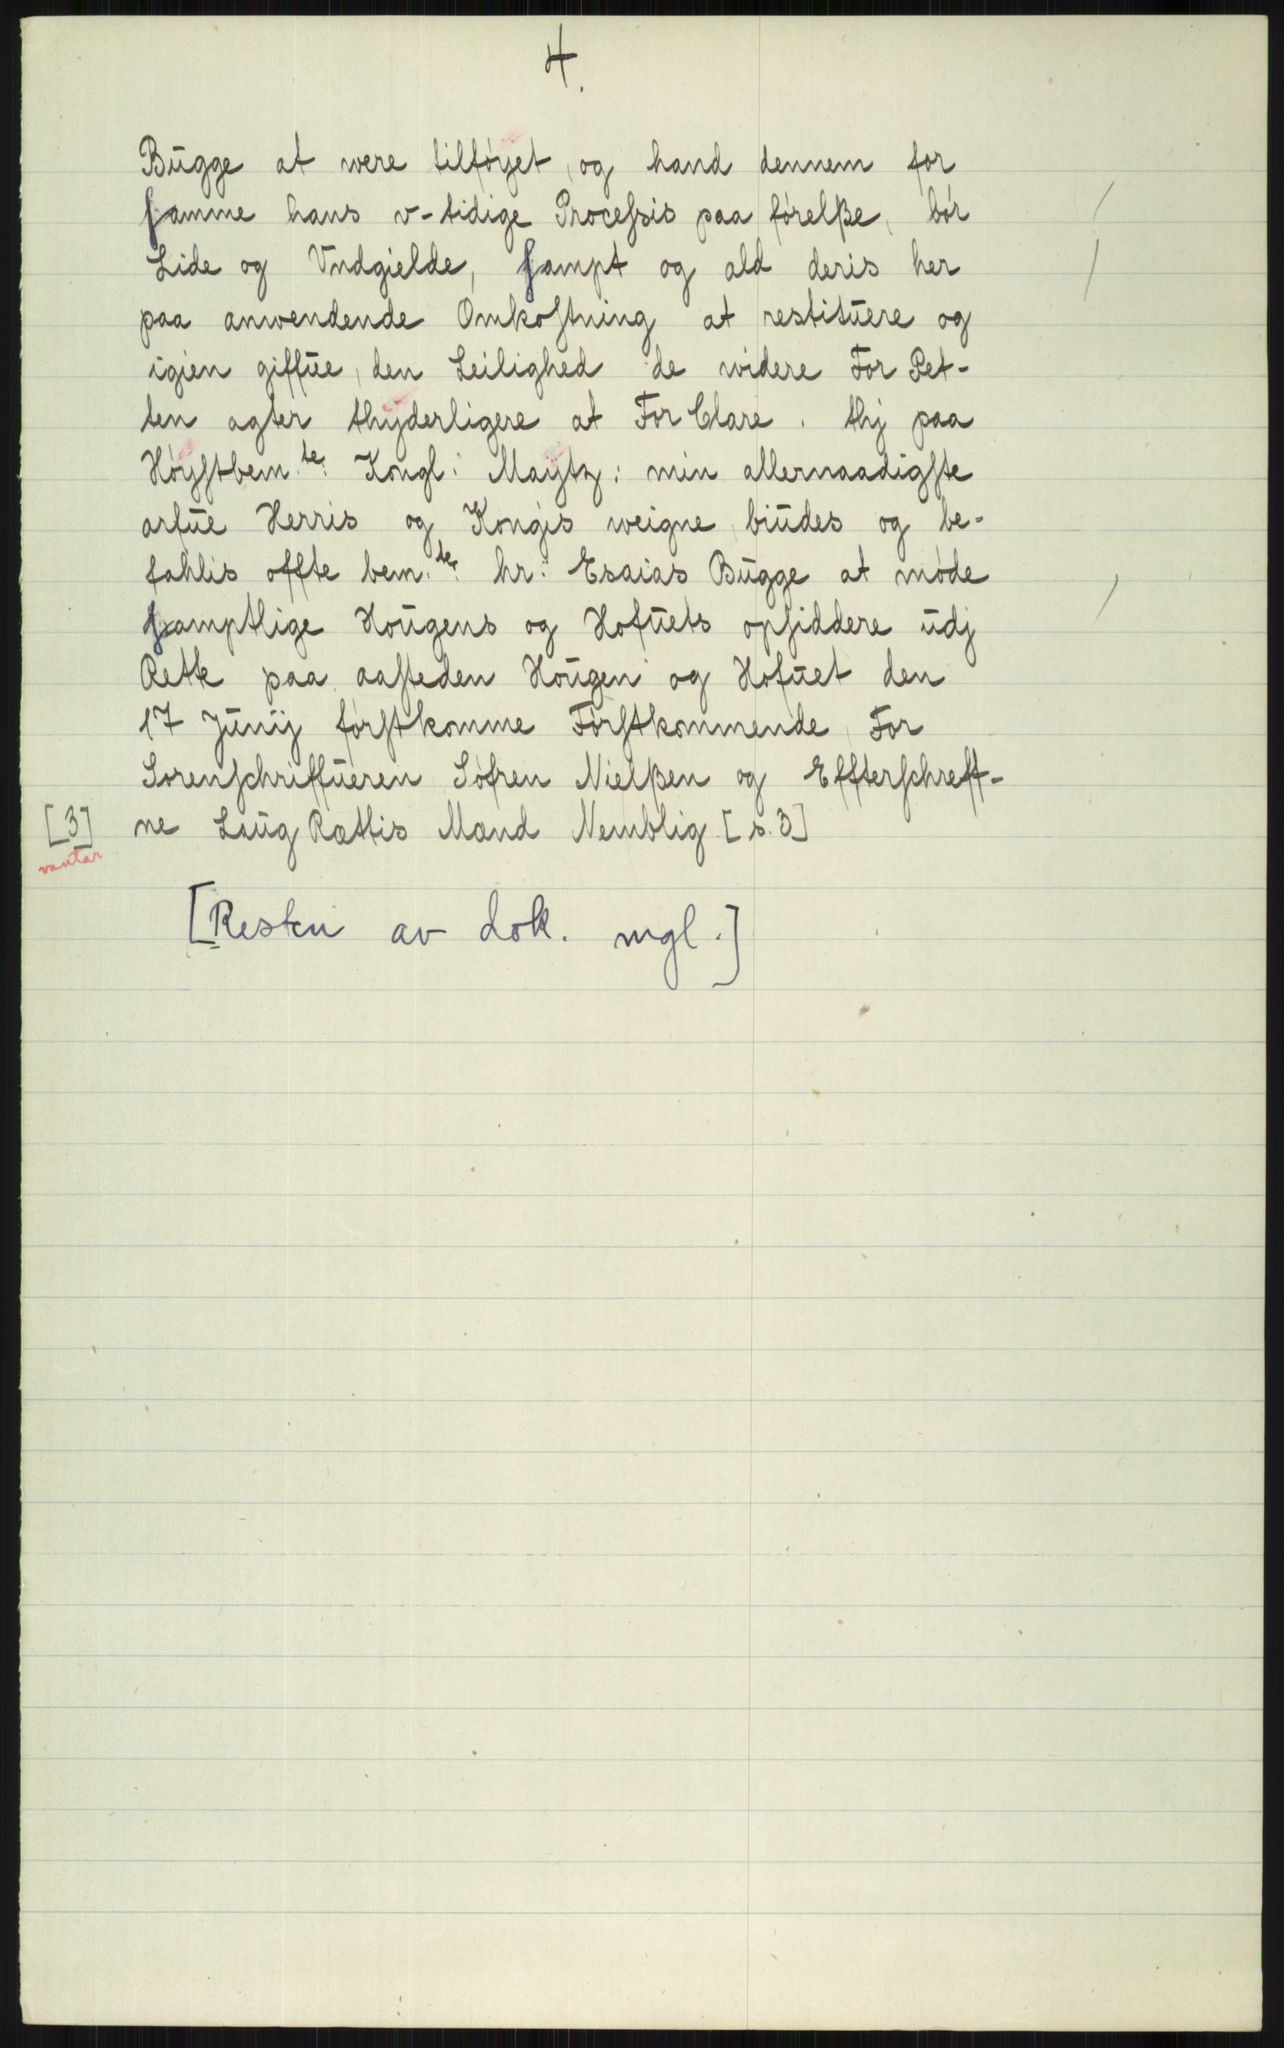 4.
Bugge at were tilføyet, og hand dennem for
ſamme hans v-tidige Proceſsis paa førelße, bør
Lide og Vndgielde, ſampt og ald deris her
paa anwendende Omkoſtning at restituere og
igien giffue, den Leilighed de widere For Ret-
ten agter thyderligere at For Clare. thj paa
Høyſtbem.te: Kongl: Maÿtz: min allernaadigſte
arfue Herris og Kongis weigne biudes og be-
fahlis offte bem.te: hr: Esaias Bugge at møde
ſamptlige Hougens og Hofuets opſiddere udj
Rette paa aaſteden Hougen og Hofuet den
17 Junij førſtkomme Førſtkommende, For
Sorenſchriffueren Søfren Nielßen og Effterſchreff-
[3] ne Laug Rættis Mænd Nemblig [s. 3]
vantar
[Resten av dok. mgl.]